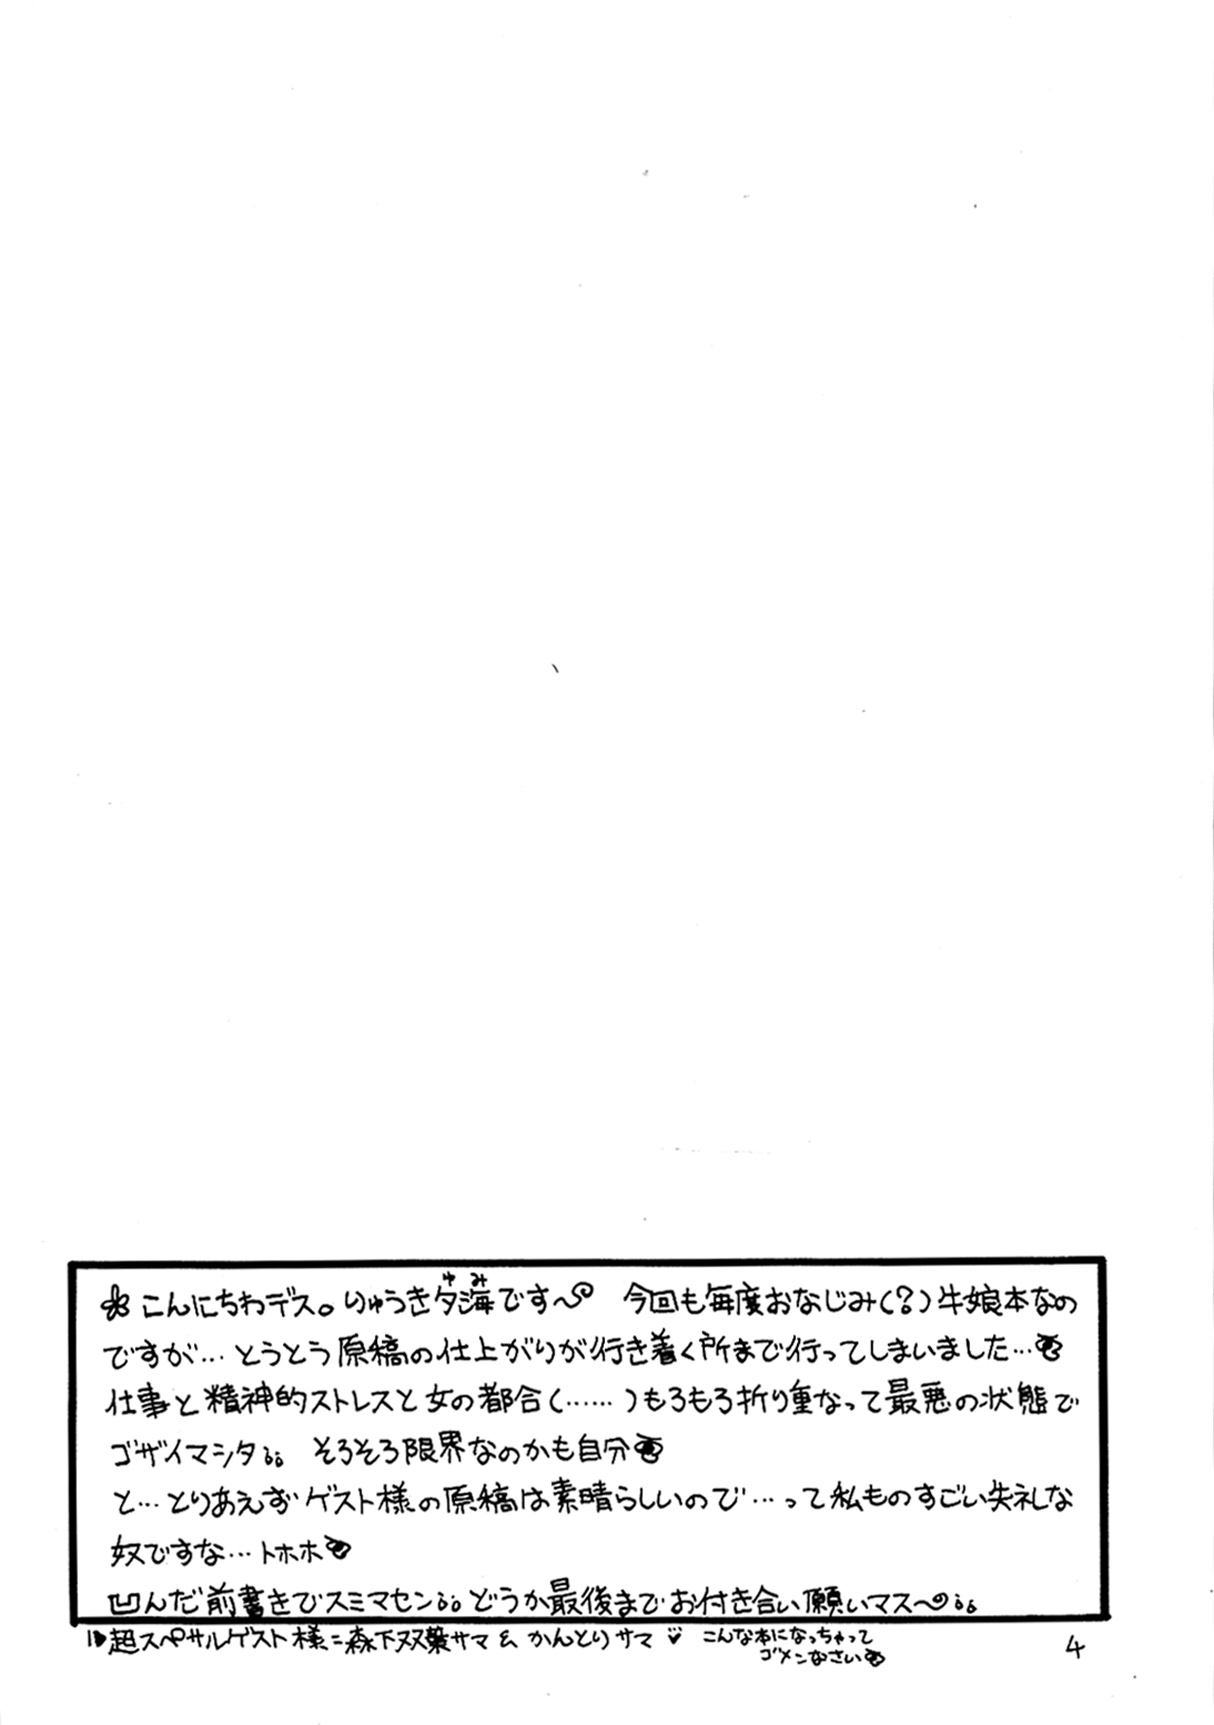 こんにちわデス。りゅうき夕海です〜 今回も毎度おなじみ(?)牛娘本なの
ゆみ
ですが…とうとう原稿の仕上がりが行き着く所まで行ってしまいました…
仕事と精神的ストレスと女の都合(……)もろもろ折り重なって最悪の状態で
ゴザイマシタ。。 そろそろ限界なのかも自分
と…とりあえずゲスト様の原稿は素晴らしいので…って私ものすごい失礼な
奴ですな…トホホ
凹んだ前書きでスミマセン。。どうか最後までお付き合い願いマス〜。。
超スペサルゲスト様=森下双葉サマ & かんとりサマ♡ こんな本になっちゃって
ゴメンなさい
4